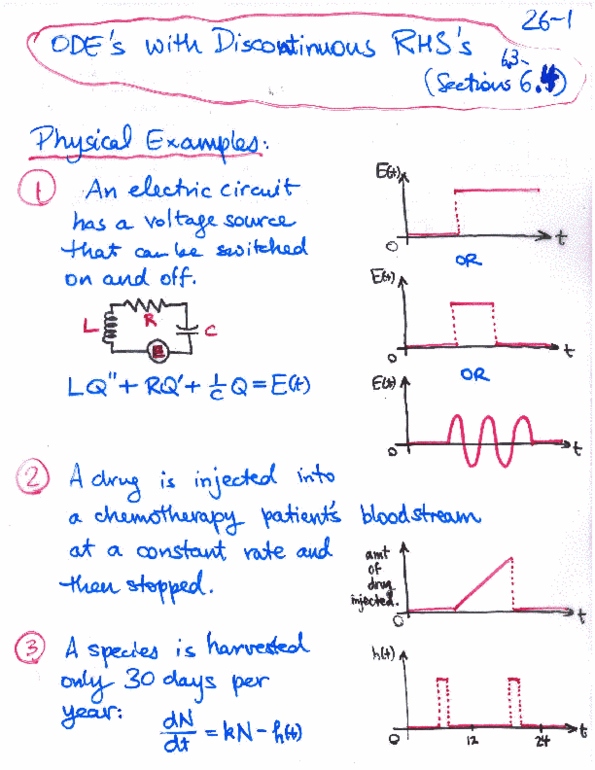 26-1
ODE's with Discontinuous RHS's
6.3-
(Sections 6.4)
Physical Examples:
1 An electric circuit
has a voltage source
that can be switched
on and off.
L R C
E
LQ'' + RQ' + 1/C Q = E(t)
E(t)
0 t
OR
E(t)
0 t
OR
E(t)
0 t
2 A drug is injected into
a chemotherapy patient's bloodstream
at a constant rate and
then stopped.
amt
of
drug
injected.
0 t
3 A species is harvested
only 30 days per
year: dN/dt = kN - h(t)
h(t)
0 12 24 t